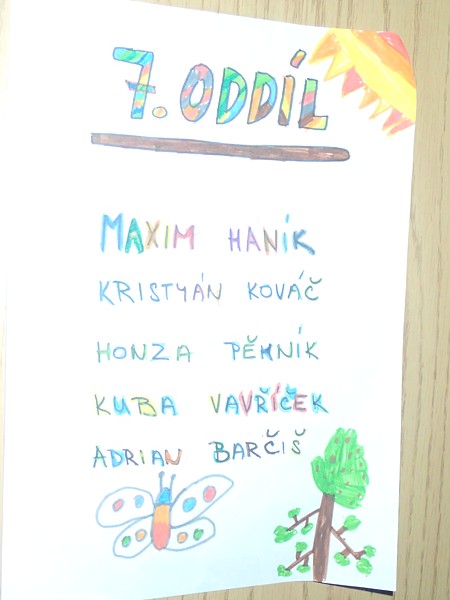 7. ODDÍL
MAXIM HANÍK
KRISTYÁN KOVÁČ
HONZA PĚKNÍK
KUBA VAVŘÍČEK
ADRIAN BARČIŠ